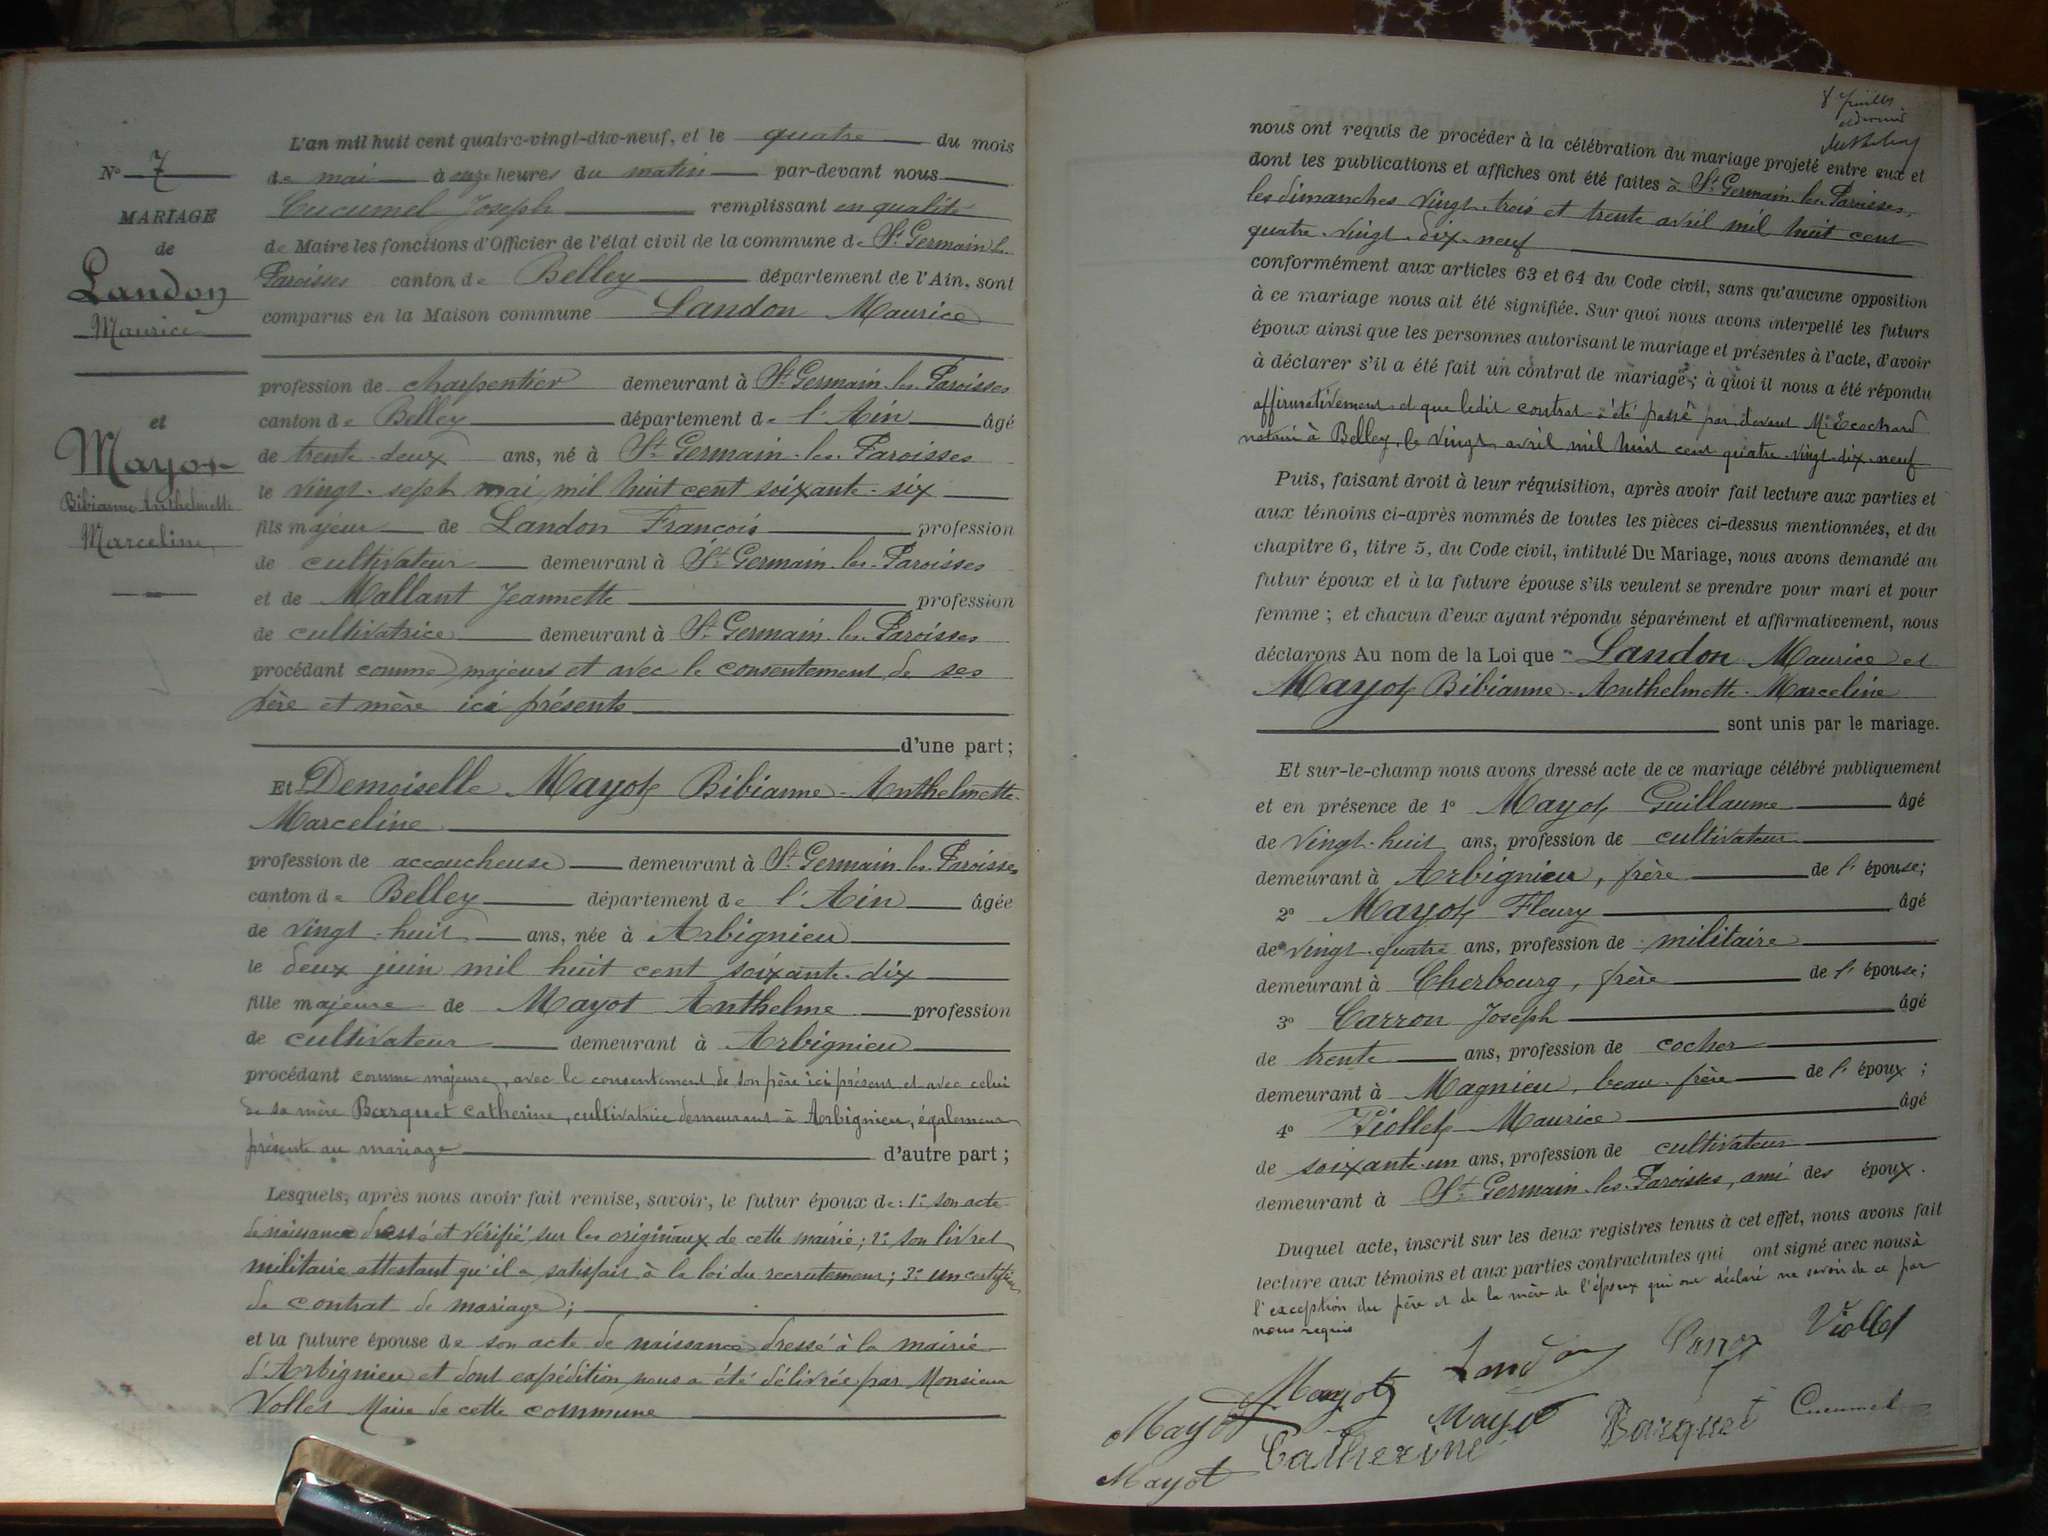 N° 7
MARIAGE
de
Landon
Maurice
et
Mayot
Bibianne Anthelmette
Marceline
L'an mil huit cent quatre-vingt-dix-neuf, et le quatre du mois
de mai à onze heures du matin par-devant nous
Cucumel Joseph remplissant en qualité
de Maire les fonctions d'Officier de l'état civil de la commune de St Germain les
Paroisses canton de Belley département de l'Ain, sont
comparus en la Maison commune Landon Maurice
profession de charpentier demeurant à St Germain-les-Paroisses
canton de Belley département de l'Ain âgé
de trente-deux ans, né à St Germain-les-Paroisses
le vingt-sept mai mil huit cent soixante-six
fils majeur de Landon François profession
de cultivateur demeurant à St Germain-les-Paroisses
et de Mallant Jeannette profession
de cultivatrice demeurant à St Germain-les-Paroisses
procédant comme majeur et avec le consentement de ses
père et mère ici présents
d'une part;
Et Demoiselle Mayot Bibianne-Anthelmette-
Marceline
profession de accoucheuse demeurant à St Germain-les-Paroisses
canton de Belley département de l'Ain âgée
de vingt-huit ans, née à Arbignieu
le deux juin mil huit cent soixante-dix
fille majeure de Mayot Anthelme profession
de cultivateur demeurant à Arbignieu
procédant comme majeure, avec le consentement de son père ici présent et avec celui
de sa mère Barquet Catherine, cultivatrice demeurant à Arbignieu, également
présente au mariage d'autre part;
Lesquels, après nous avoir fait remise, savoir, le futur époux de: 1° son acte
de naissance dressé et vérifié sur les originaux de cette mairie; 2° son livret
militaire attestant qu'il a satisfait à la loi du recrutement; 3° un certificat
de contrat de mariage;
et la future épouse de son acte de naissance dressé à la mairie
d'Arbignieu et dont expédition nous a été délivrée par Monsieur
Vollet Maire de cette commune
nous ont requis de procéder à la célébration du mariage projeté entre eux et
dont les publications et affiches ont été faites à St Germain-les-Paroisses,
les dimanches vingt-trois et trente avril mil huit cent
quatre-vingt-dix-neuf
conformément aux articles 63 et 64 du Code civil, sans qu'aucune opposition
à ce mariage nous ait été signifiée. Sur quoi nous avons interpellé les futurs
époux ainsi que les personnes autorisant le mariage et présentes à l'acte, d'avoir
à déclarer s'il a été fait un contrat de mariage; à quoi il nous a été répondu
affirmativement et que ledit contrat a été passé par devant Me Ecochard
notaire à Belley, le vingt avril mil huit cent quatre-vingt-dix-neuf
Puis, faisant droit à leur réquisition, après avoir fait lecture aux parties et
aux témoins ci-après nommés de toutes les pièces ci-dessus mentionnées, et du
chapitre 6, titre 5, du Code civil, intitulé Du Mariage, nous avons demandé au
futur époux et à la future épouse s'ils veulent se prendre pour mari et pour
femme; et chacun d'eux ayant répondu séparément et affirmativement, nous
déclarons Au nom de la Loi que Landon Maurice et
Mayot Bibianne-Anthelmette-Marceline
sont unis par le mariage.
Et sur-le-champ nous avons dressé acte de ce mariage célébré publiquement
et en présence de 1° Mayot Guillaume âgé
de vingt-huit ans, profession de cultivateur
demeurant à Arbignieu, frère de l'épouse;
2° Mayot Fleury âgé
de vingt-quatre ans, profession de militaire
demeurant à Cherbourg, frère de l'épouse;
3° Carron Joseph âgé
de trente ans, profession de cocher
demeurant à Magnieu, beau-frère de l'époux;
4° Viollet Maurice âgé
de soixante-un ans, profession de cultivateur
demeurant à St Germain-les-Paroisses, ami des époux.
Duquel acte, inscrit sur les deux registres tenus à cet effet, nous avons fait
lecture aux témoins et aux parties contractantes qui ont signé avec nous à
l'exception du père et de la mère de l'époux qui ont déclaré ne savoir de ce par
nous requis
Landon Viollet
Mayot
Mayot Mayot Barquet Cucumel
Catherine
Mayot